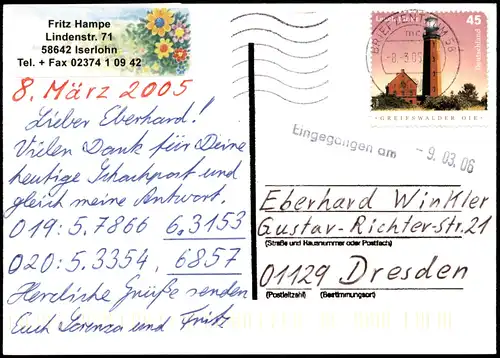 Fritz Hampe
Lindenstr. 71
58642 Iserlohn
Tel. + Fax 02374 1 09 42
8. März 2005
Lieber Eberhard!
Vielen Dank für Deine
heutige Schachpost und
gleich meine Antwort.
019: 5.7866 6.3153
020: 5.3354, 6857
Herzliche Grüße senden
Euch Lorenza und Fritz
BRIEFZENTRUM 58
45
Deutschland
GREIFSWALDER OIE
Eingegangen am - 9. 03. 06
Eberhard Winkler
Gustav-Richter-str. 21
(Straße und Hausnummer oder Postfach)
01129 Dresden
(Postleitzahl) (Bestimmungsort)